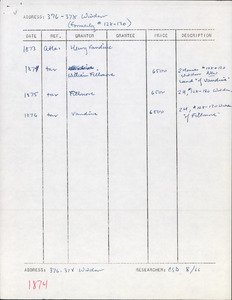 ADDRESS: 376-378 Windsor
(formerly #128-130)
DATE REF. GRANTOR GRANTEE PRICE DESCRIPTION
1873 Atlas Henry Vandine
1874 tax William Fillmore 6500 2 houses #128-130
Windsor
land "of Vandine"
1875 tax Fillmore 6500 2 H, #128-130 Windsor
1876 tax Vandine 6500 2 H, #128-130 Windsor
"of Fillmore"
ADDRESS: 376-378 Windsor RESEARCHER: CSD
1874